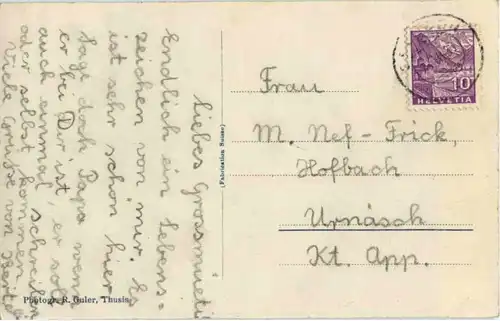 Liebes Grossmueti
Endlich ein Lebens-
zeichen von mir. Es
ist sehr schön hier.
Sage doch Papa wenn
er bei Dir ist, er soll
auch einmal schreiben
oder selbst kommen.
Viele Grüsse von
Frau
M. Nef-Frick,
Hofbach
Urnäsch
Kt. App.
10
HELVETIA
(Fabrication Suisse)
Photogr. R. Guler, Thusis